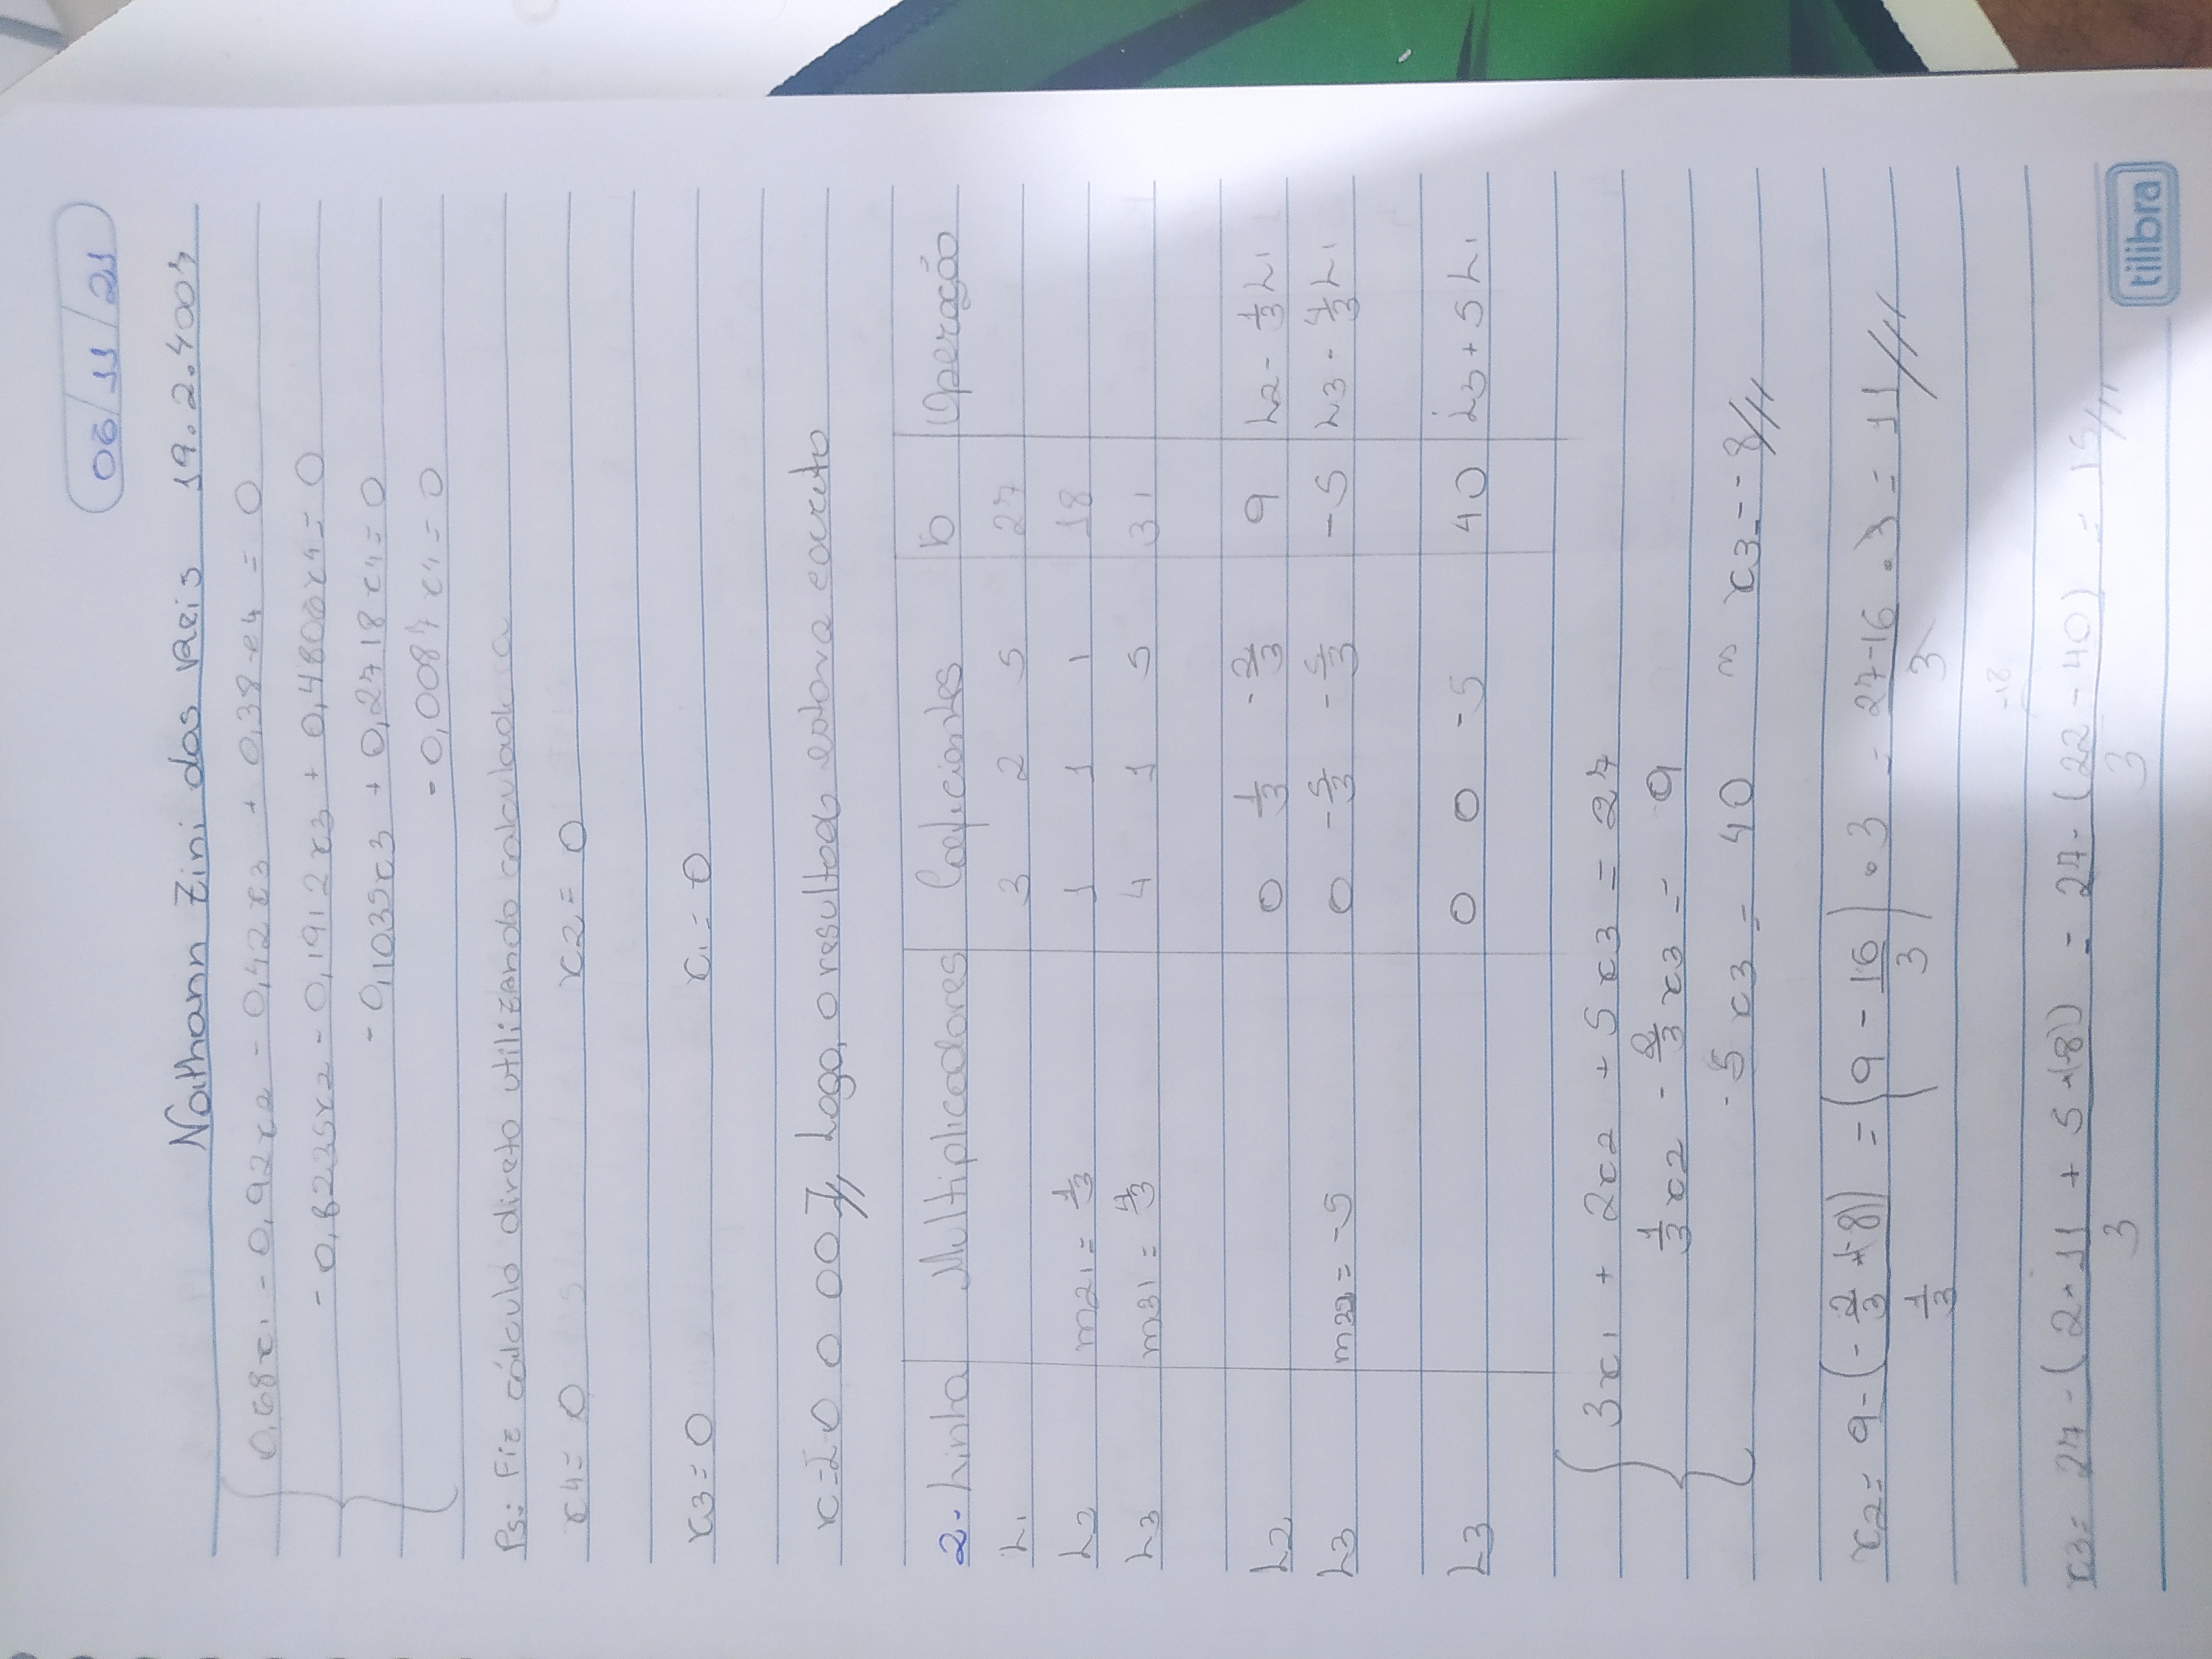 06/11/21
Nathann Zini dos Reis 19.2.4007
0,68x1 - 0,92x2 - 0,42x3 + 0,38x4 = 0
- 0,8235x2 - 0,1912x3 + 0,4806x4 = 0
- 0,1035x3 + 0,2718x4 = 0
- 0,0087x4 = 0
Ps: Fiz cálculo direto utilizando calculadora
x4 = 0 x2 = 0
x3 = 0 x1 = 0
x = [0 0 0 0]// Logo, o resultado estava correto
2- Linha Multiplicadores Coeficientes b Operação
L1 3 2 5 27
L2 m21 = 1/3 1 1 1 18
L3 m31 = 4/3 4 1 5 31
L2 0 1/3 -2/3 9 L2 - 1/3 L1
L3 m32 = -5 0 -5/3 -5/3 -5 L3 - 4/3 L1
L3 0 0 -5 40 L3 + 5 L1
3x1 + 2x2 + 5x3 = 27
1/3 x2 - 2/3 x3 = 9
-5 x3 = 40 => x3 = -8//
x2 = (9 - (-2/3 * (-8))) / (1/3) = (9 - 16/3) • 3 = (27-16)/3 • 3 = 11//
-18
x3 = (27 - (2 * 11 + 5 * (-8))) / 3 = (27 - (22 - 40)) / 3 = 15//
tilibra